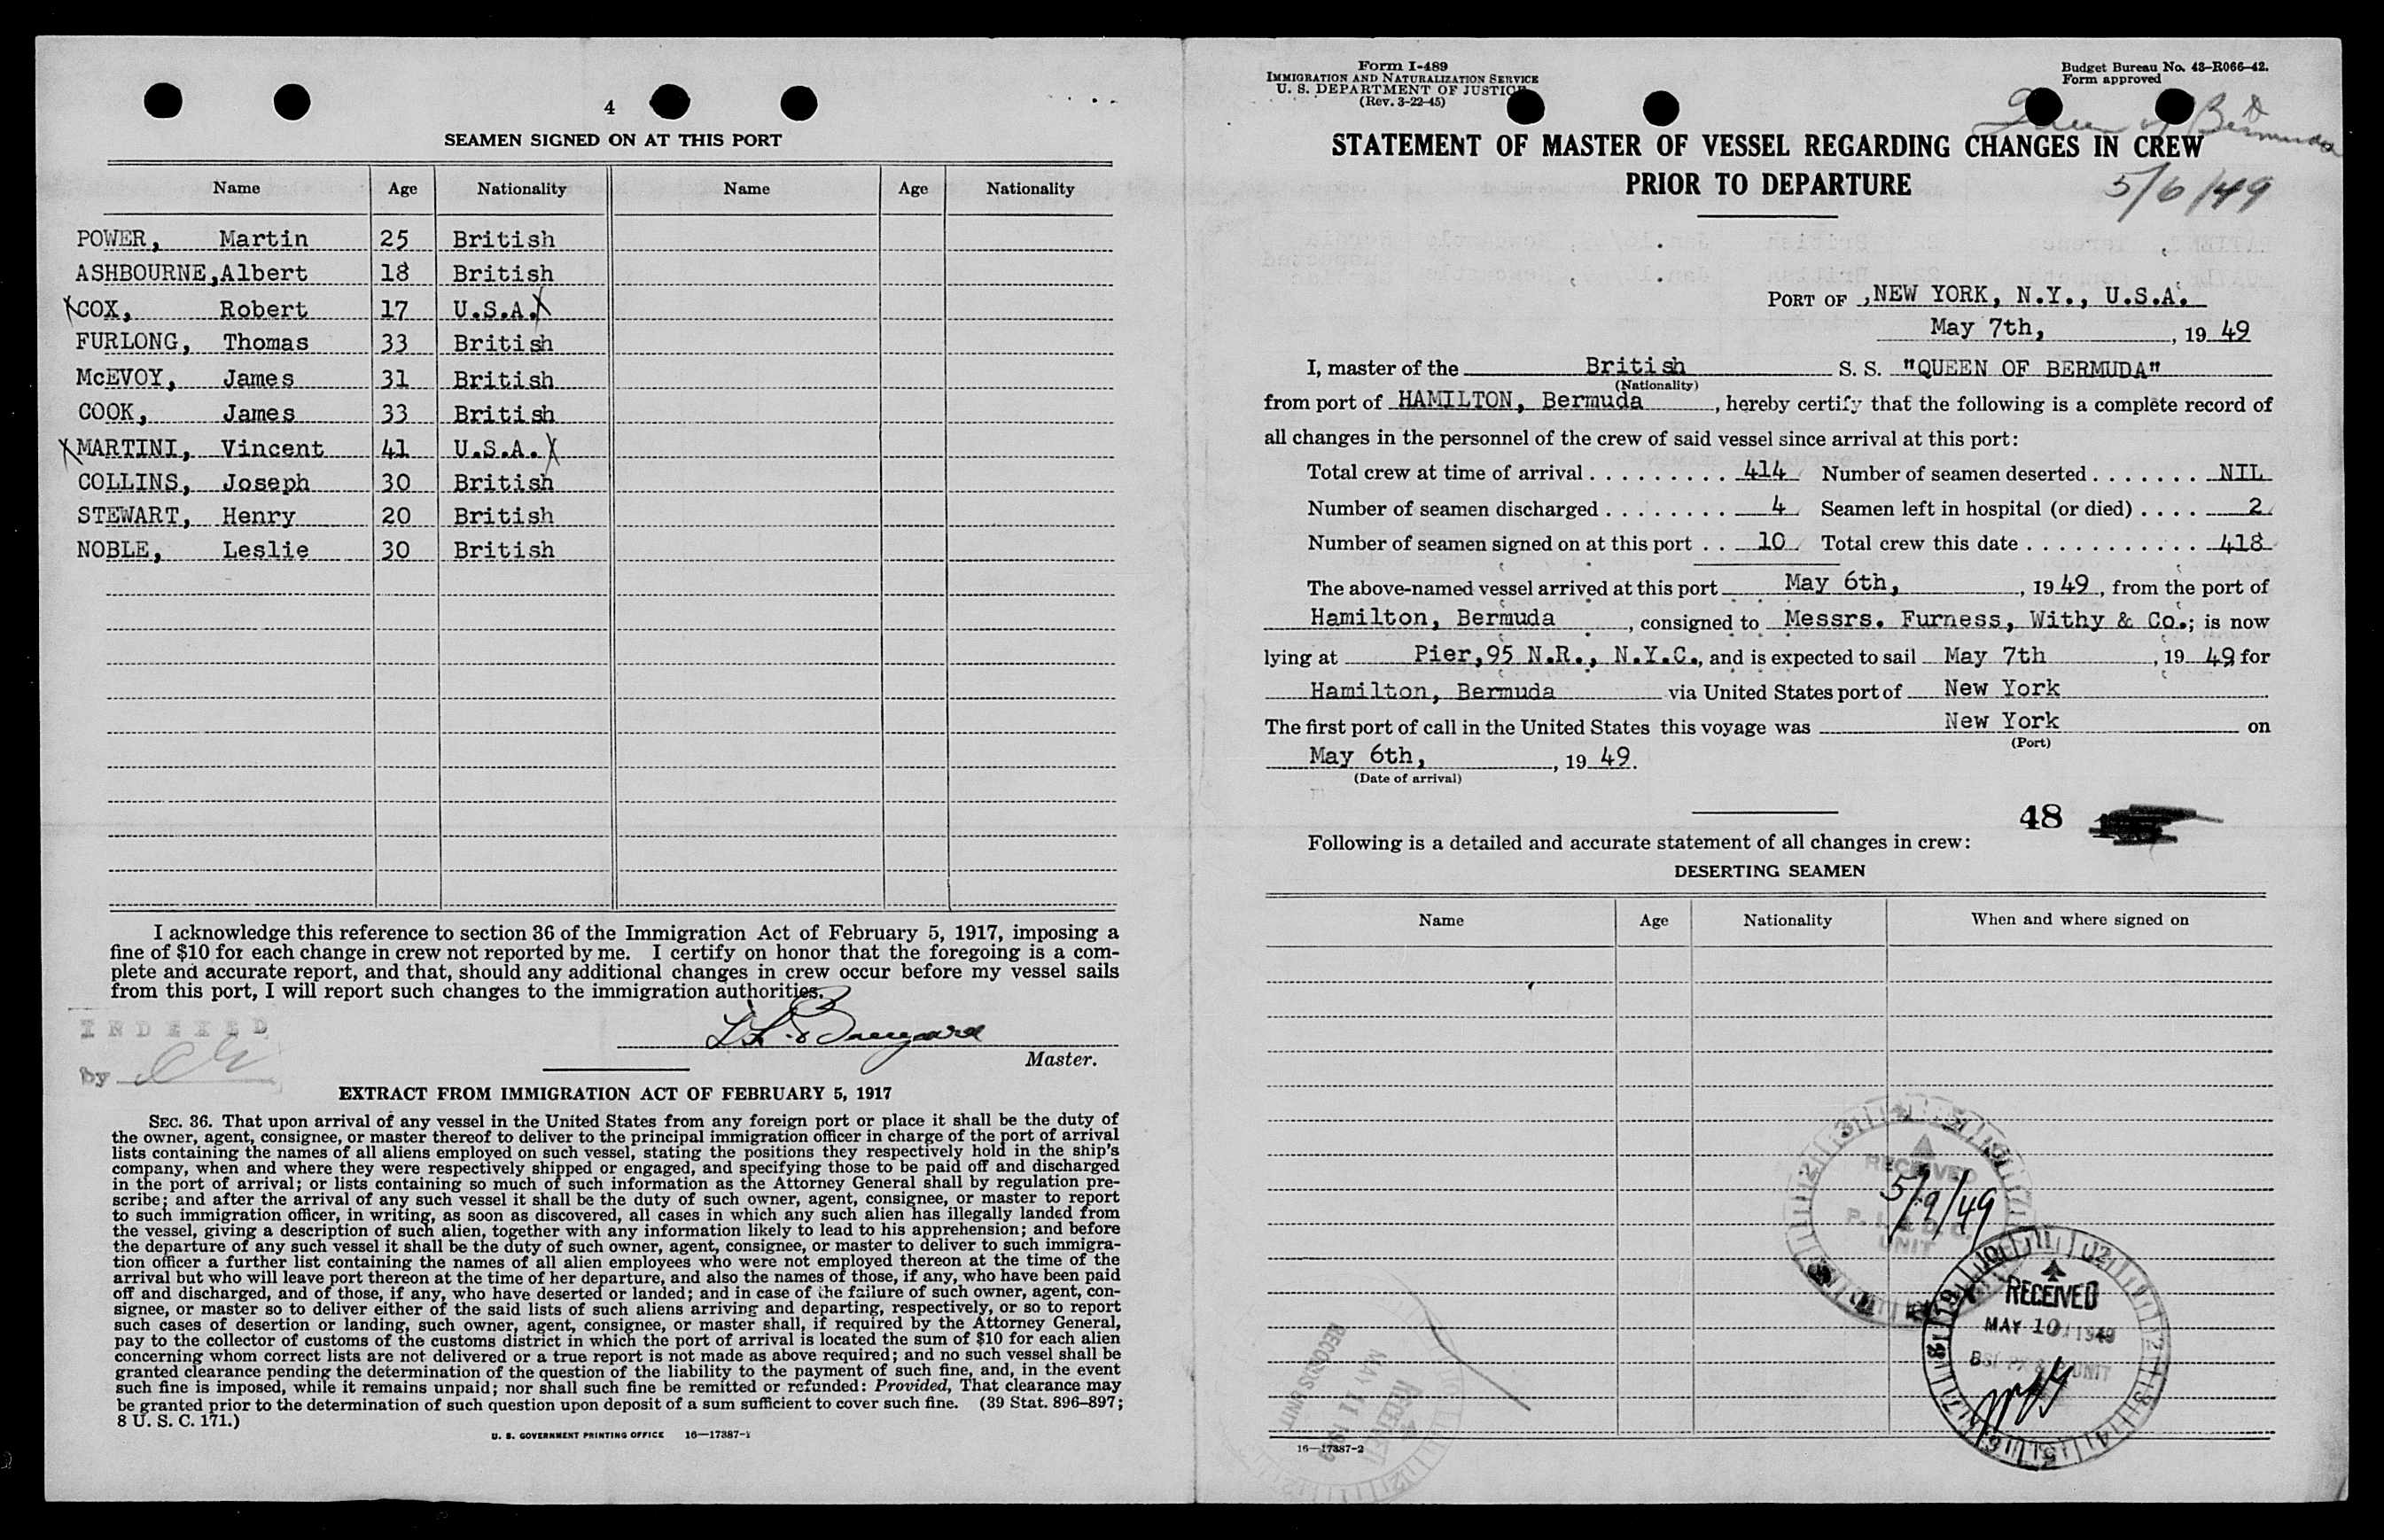 4
SEAMEN SIGNED ON AT THIS PORT
Name Age Nationality Name Age Nationality
POWER, Martin 25 British
ASHBOURNE, Albert 18 British
X COX, Robert 17 U.S.A. X
FURLONG, Thomas 33 British
McEVOY, James 31 British
COOK, James 33 British
X MARTINI, Vincent 41 U.S.A. X
COLLINS, Joseph 30 British
STEWART, Henry 20 British
NOBLE, Leslie 30 British
I acknowledge this reference to section 36 of the Immigration Act of February 5, 1917, imposing a
fine of $10 for each change in crew not reported by me. I certify on honor that the foregoing is a com-
plete and accurate report, and that, should any additional changes in crew occur before my vessel sails
from this port, I will report such changes to the immigration authorities.
INDEXED
by
Master.
EXTRACT FROM IMMIGRATION ACT OF FEBRUARY 5, 1917
SEC. 36. That upon arrival of any vessel in the United States from any foreign port or place it shall be the duty of
the owner, agent, consignee, or master thereof to deliver to the principal immigration officer in charge of the port of arrival
lists containing the names of all aliens employed on such vessel, stating the positions they respectively hold in the ship's
company, when and where they were respectively shipped or engaged, and specifying those to be paid off and discharged
in the port of arrival; or lists containing so much of such information as the Attorney General shall by regulation pre-
scribe; and after the arrival of any such vessel it shall be the duty of such owner, agent, consignee, or master to report
to such immigration officer, in writing, as soon as discovered, all cases in which any such alien has illegally landed from
the vessel, giving a description of such alien, together with any information likely to lead to his apprehension; and before
the departure of any such vessel it shall be the duty of such owner, agent, consignee, or master to deliver to such immigra-
tion officer a further list containing the names of all alien employees who were not employed thereon at the time of the
arrival but who will leave port thereon at the time of her departure, and also the names of those, if any, who have been paid
off and discharged, and of those, if any, who have deserted or landed; and in case of the failure of such owner, agent, con-
signee, or master so to deliver either of the said lists of such aliens arriving and departing, respectively, or so to report
such cases of desertion or landing, such owner, agent, consignee, or master shall, if required by the Attorney General,
pay to the collector of customs of the customs district in which the port of arrival is located the sum of $10 for each alien
concerning whom correct lists are not delivered or a true report is not made as above required; and no such vessel shall be
granted clearance pending the determination of the question of the liability to the payment of such fine, and, in the event
such fine is imposed, while it remains unpaid; nor shall such fine be remitted or refunded: Provided, That clearance may
be granted prior to the determination of such question upon deposit of a sum sufficient to cover such fine. (39 Stat. 896–897;
8 U. S. C. 171.)
U. S. GOVERNMENT PRINTING OFFICE 16—17387-1
Form I-489
IMMIGRATION AND NATURALIZATION SERVICE
U. S. DEPARTMENT OF JUSTICE
(Rev. 3-22-45)
Budget Bureau No. 43–R066–42.
Form approved
Queen of Bermuda
STATEMENT OF MASTER OF VESSEL REGARDING CHANGES IN CREW
PRIOR TO DEPARTURE
5/6/49
PORT OF NEW YORK, N.Y., U.S.A.
May 7th, , 19 49
I, master of the British S. S. "QUEEN OF BERMUDA"
(Nationality)
from port of HAMILTON, Bermuda , hereby certify that the following is a complete record of
all changes in the personnel of the crew of said vessel since arrival at this port:
Total crew at time of arrival . . . . . . . . . 414 Number of seamen deserted . . . . . . . NIL
Number of seamen discharged . . . . . . . . 4 Seamen left in hospital (or died) . . . . 2
Number of seamen signed on at this port . . 10 Total crew this date . . . . . . . . . . . . 418
The above-named vessel arrived at this port May 6th, , 19 49 , from the port of
Hamilton, Bermuda , consigned to Messrs. Furness, Withy & Co.; is now
lying at Pier, 95 N.R., N.Y.C., and is expected to sail May 7th , 19 49 for
Hamilton, Bermuda via United States port of New York
The first port of call in the United States this voyage was New York on
(Port)
May 6th, , 19 49.
(Date of arrival)
48
Following is a detailed and accurate statement of all changes in crew:
DESERTING SEAMEN
Name Age Nationality When and where signed on
RECEIVED
5/9/49
UNIT
RECEIVED
MAY 10 1949
UNIT
RECEIVED
MAY 11 1949
RECORDS UNIT
16—17387-2